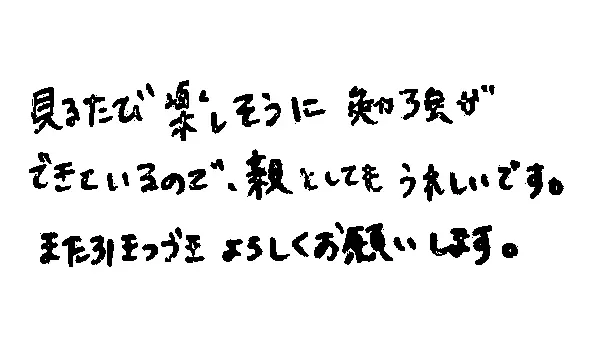 見るたび楽しそうに 勉強が
できているので、親としても うれしいです。
また引きつづき よろしくお願いします。